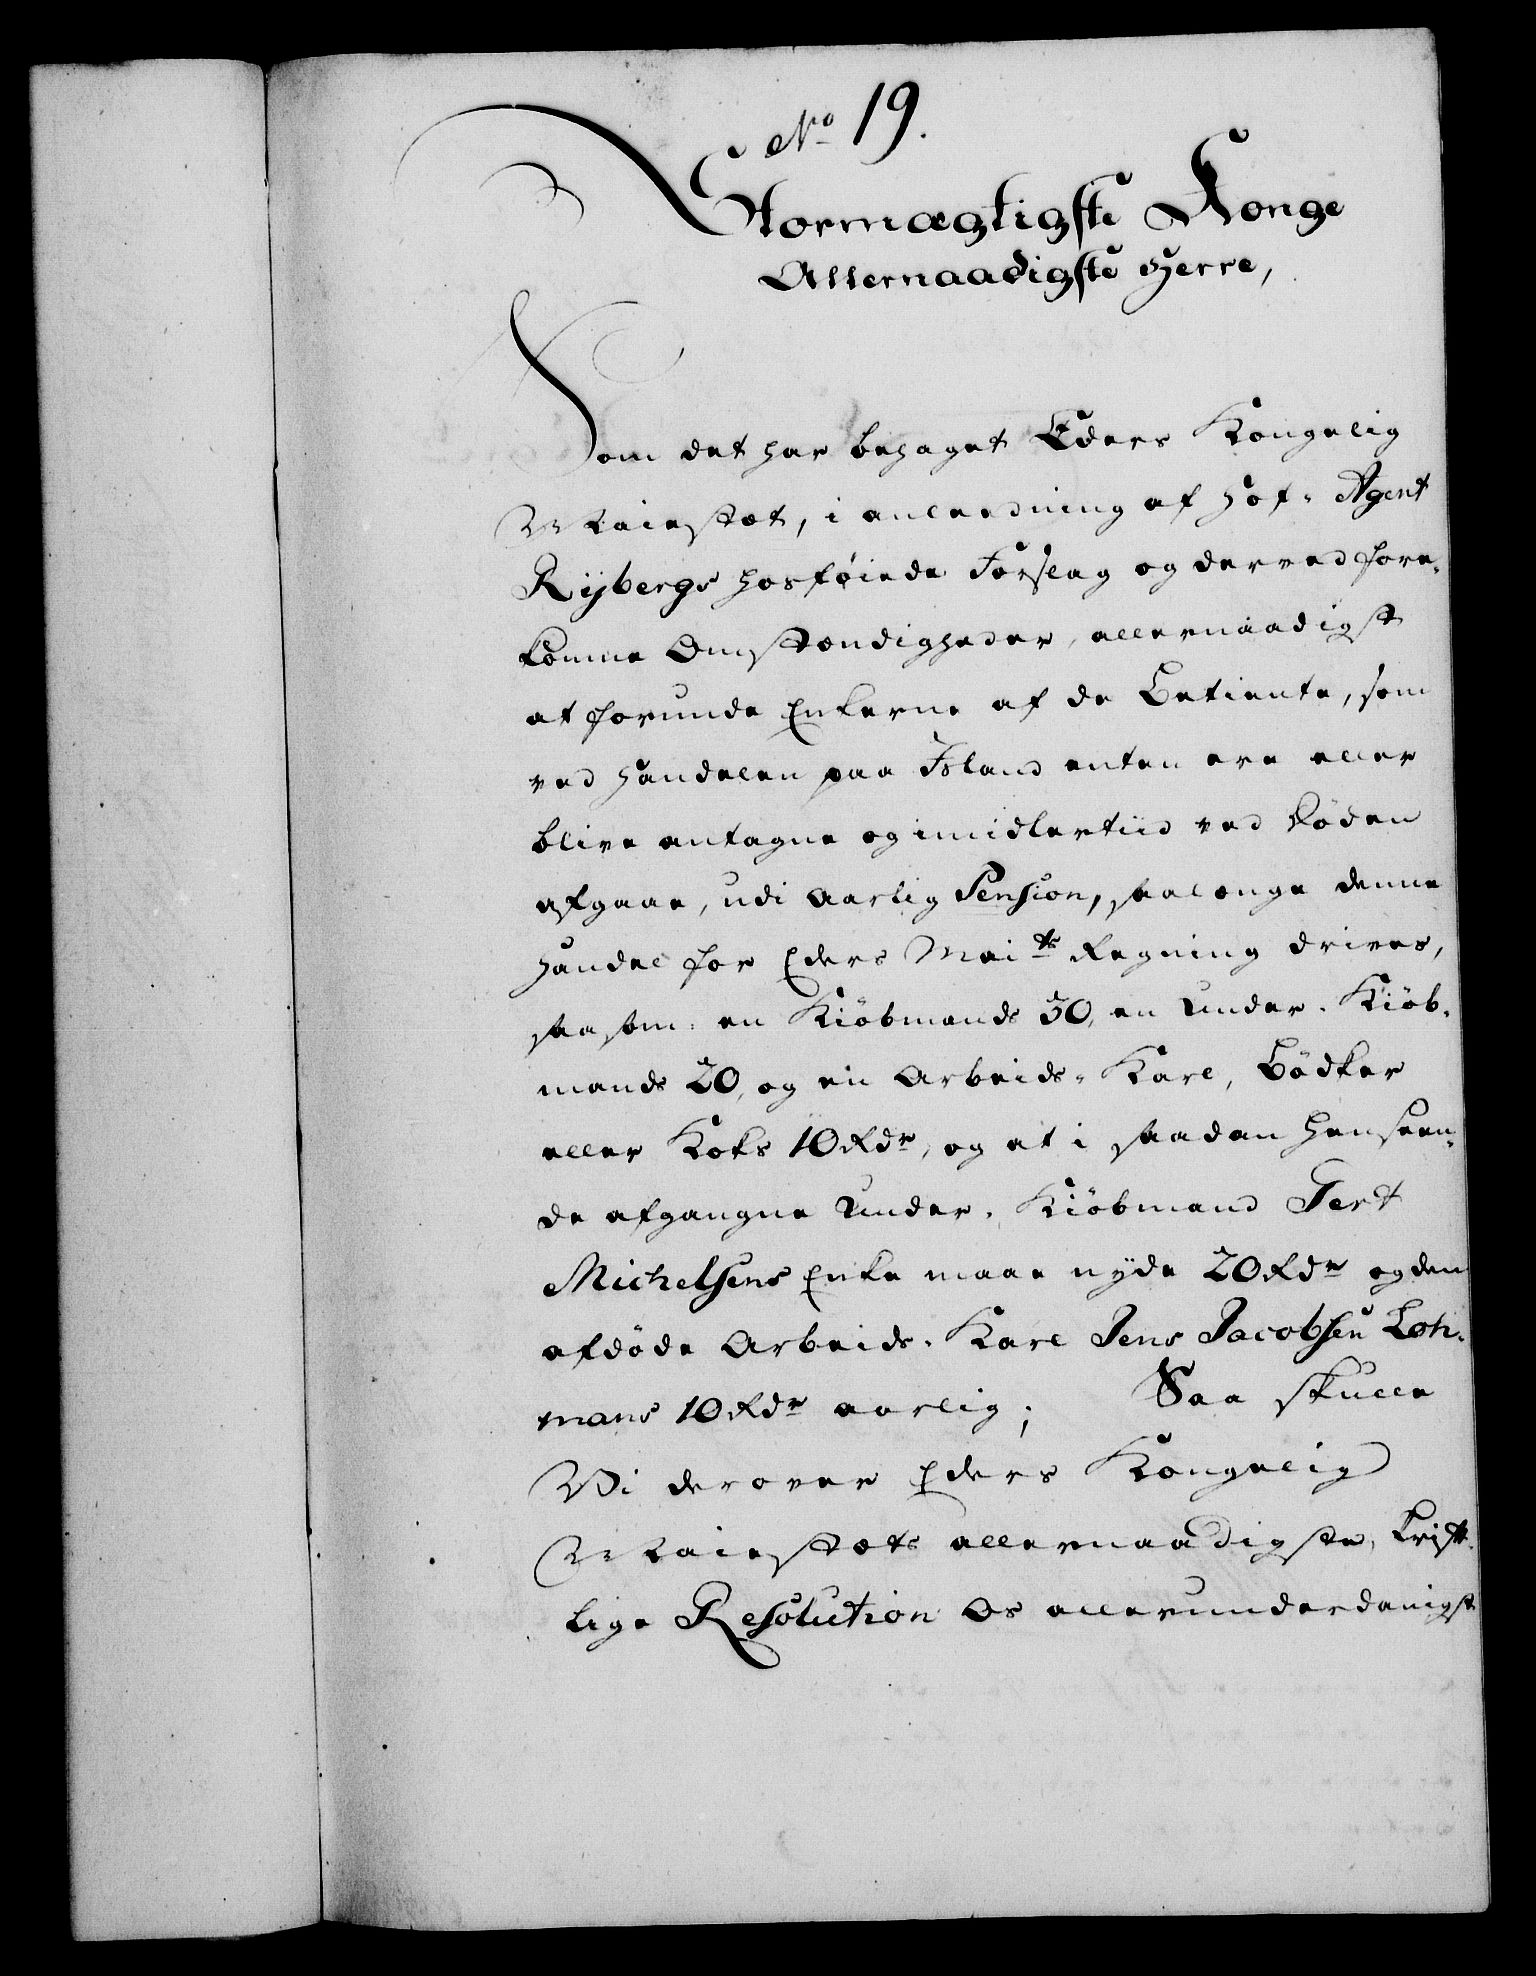 No 19.
Stormægtigste Konge
Allernaadigste Herre,
Som det har behaget Eders Kongelig
Maiestæt, i anleedning af Hof-Agent
Rijbergs hosføiede Forslag og derved fore-
komne Omstændigheder, allernaadigst
at forunde Enkerne af de Betiente, som
ved Handelen paa Island enten ere eller
blive antagne og imidlertiid ved Døden
afgaae, udi aarlig Pension, saalænge denne
Handel for Eders Mai:ts Regning drives,
saasom: en Kiøbmands 30, en Under-Kiøb-
mands 20, og en Arbeids-Karl, Bødker
eller Koks 10 Rdr, og at i saadan Henseen-
de afgangne Under-Kiøbmand Gert
Michelsens Enke maae nyde 20 Rdr og den
afdøde Arbeids-Karl Jens Jacobsen Loh-
mans 10 Rdr aarlig; Saa skulle
Vi derover Eders Kongelig
Maiestæts allernaadigste, skrift-
lige Resolution Os allerunderdanigst